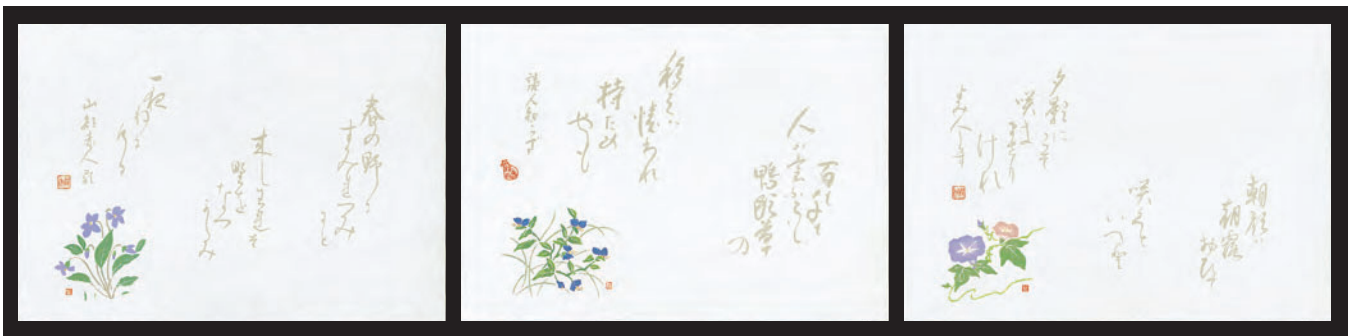 春の野に
すみれつみ
にと
来しわれそ
野を
なつ
かしみ
一夜
ねに
ける
山部赤人
百に千に
人は言ふとも
鴨頭草
の
移ろふ
情われ
持ため
やも
朝顔は
朝露
おひて
咲くと
いへど
夕影に
こそ
咲き
まさり
けれ